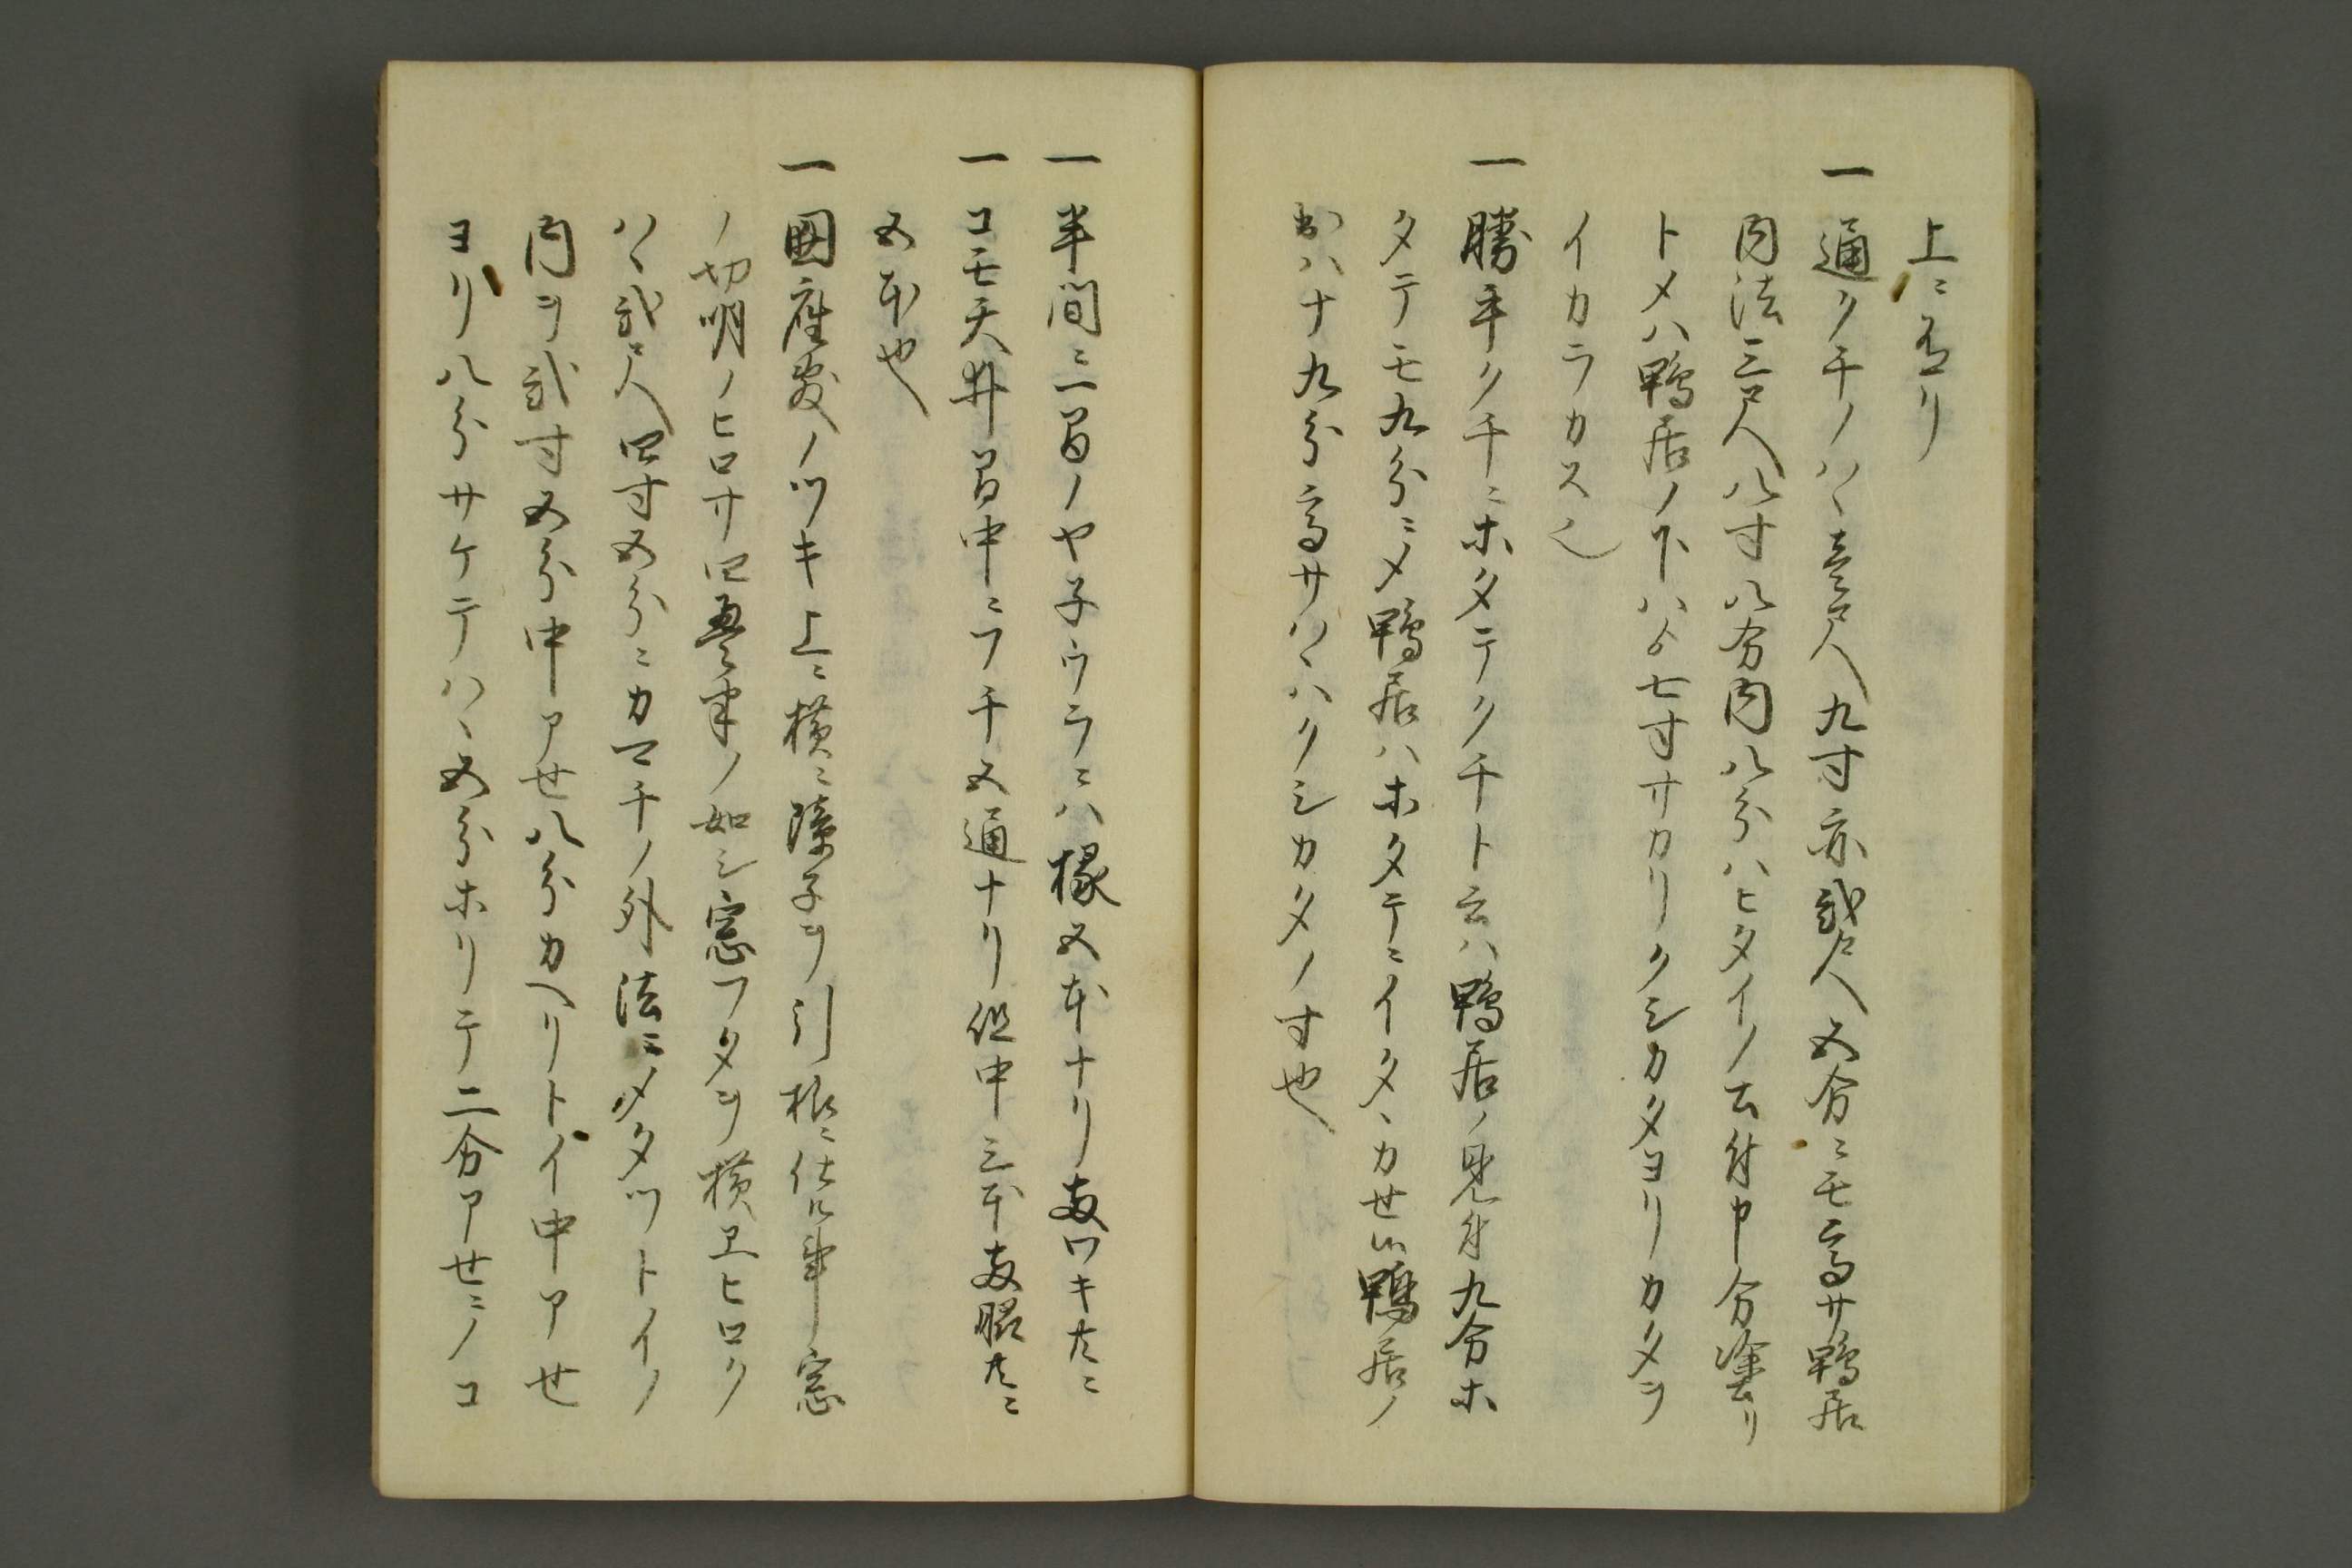 上ニ有リ
一 通クチノハヽ壹尺九寸亦貳尺五分ニモ高サ鴨居
内法三尺八寸八分内八分ハヒタイノ云付中分塗リ
トメハ鴨居ノ下ハゟ七寸サカリクシカタヨリカタヲ
イカラカス也
一 勝手クチニホタテクチト云ハ鴨居ノ見付九分ホ
タテモ九分ニメ鴨居ハホタテニイタヽカせ候鴨居ノ
ハナ九分高サハヽハクシカタノ寸也
一 半間ニ一畳ノヤ子ウラニハ椽五本ナリ両ワキ共ニ
一 コモ天井畳中ニフチ五通ナリ但中三本両脇共ニ
五本也
一 圓座疊ノツキ上ニ横ニ障子ヲ引様ニ仕ル事窓
ノ切明ノヒロサ四疊半ノ如シ窓フタヲ横ヱヒロク
ハヽ貳尺四寸五分ニカマチノ外法ニメタツトイノ
内ヲ貳寸五分中アせ八分カヘリトイ中アせ
ヨリ八分サケテハヽ五分ホリテ二分アせニノコ